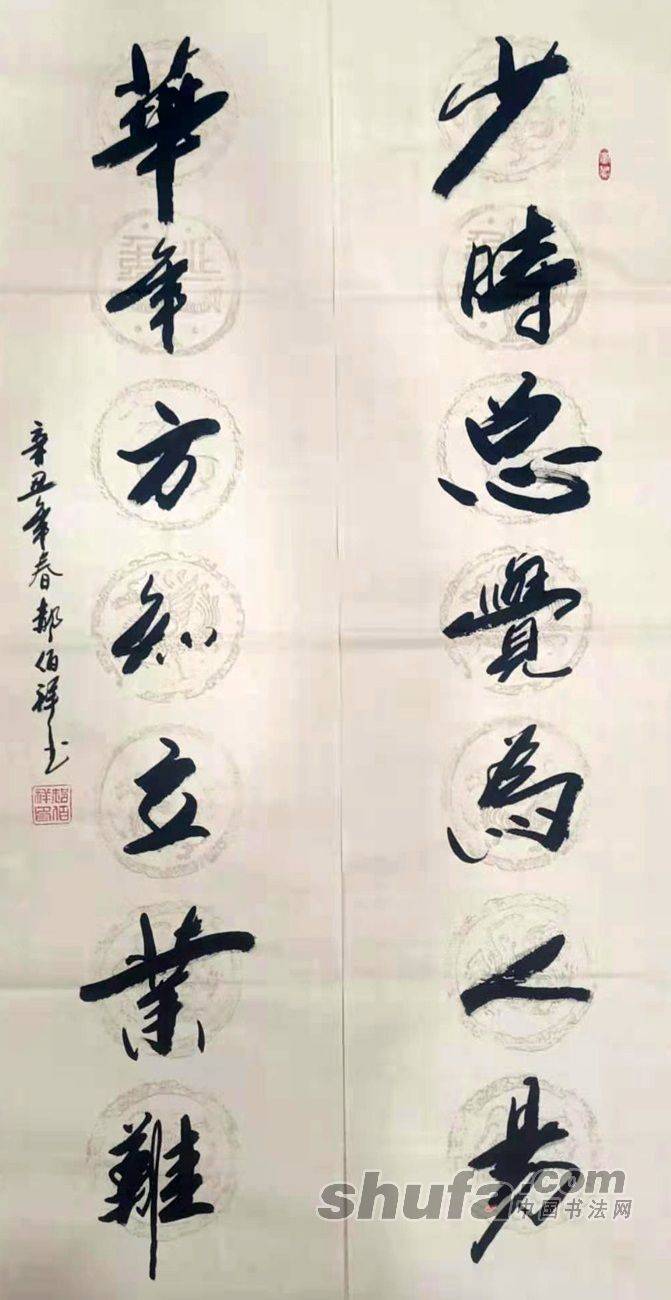 少時总覺為人易
華年方知立業難
辛丑年春郝佰祥书
郝佰祥印
shufa.com
中国书法网